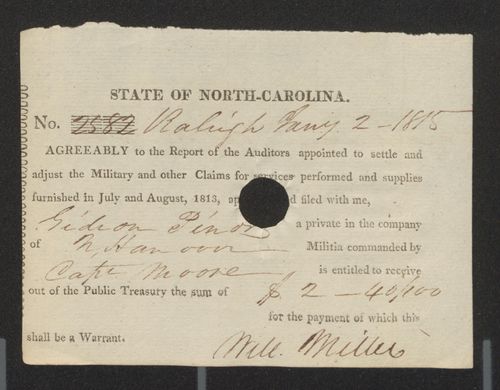 STATE OF NORTH-CAROLINA.
No. 2582 Raleigh Jany 2 - 1815
AGREEABLY to the Report of the Auditors appointed to settle and
adjust the Military and other Claims for services performed and supplies
furnished in July and August, 1813, ap d filed with me,
Gideon a private in the company
of N. Hanover Militia commanded by
Capt Moore is entitled to receive
out of the Public Treasury the sum of $ 2 - 40/100
for the payment of which this
shall be a Warrant.
Will. Miller